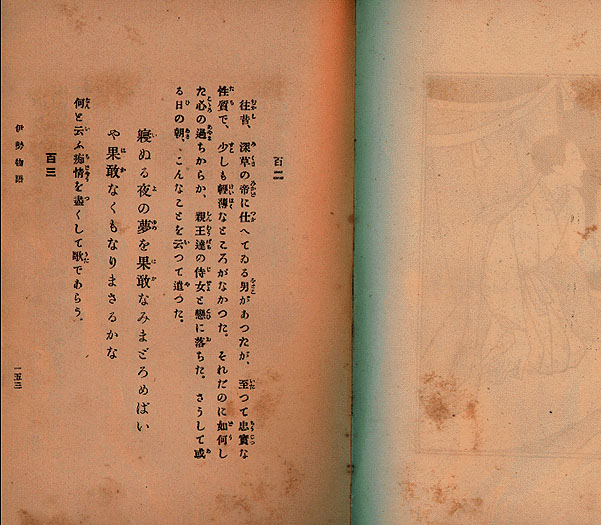 百二
往昔、深草の帝に仕へてゐる男があつたが、至つて忠實な
性質で、少しも輕薄なところがなかつた。それだのに如何し
た心の過ちからか、親王達の侍女と戀に落ちた。さうして或
る日の朝、こんなことを云つて遣つた。
寢ぬる夜の夢を果敢なみまどろめばい
や果敢なくもなりまさるかな
何と云ふ痴情を盡くして歌であらう。
百三
伊勢物語
一五三